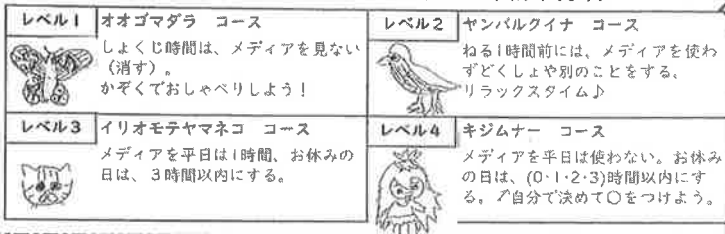 レベル1 オオゴマダラ コース
しょくじ時間は、メディアを見ない
(消す)。
かぞくでおしゃべりしよう!
レベル2 ヤンバルクイナ コース
ねる1時間前には、メディアを使わ
ずどくしょや別のことをする、
リラックスタイム♪
レベル3 イリオモテヤマネコ コース
メディアを平日は1時間、お休みの
日は、3時間以内にする。
レベル4 キジムナー コース
メディアを平日は使わない。お休み
の日は、(0・1・2・3)時間以内にす
る。↗自分で決めて○をつけよう。